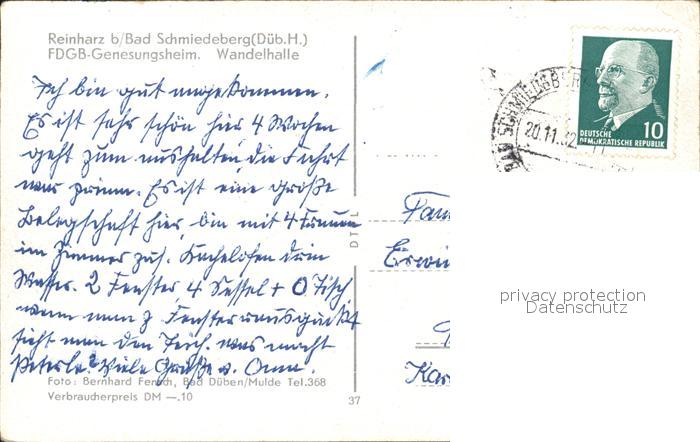 Reinharz b/Bad Schmiedeberg(Düb.H.)
FDGB-Genesungsheim. Wandelhalle
Ich bin gut angekommen.
Es ist sehr schön hier 4 Wochen
geht zum aushalten, die Fahrt
war prima. Es ist eine große
Belegschaft hier, bin mit 4 Frauen
im Zimmer zus. Kachelofen drin
Wasser. 2 Fenster 4 Sessel + O Tisch
wenn man z. Fenster rausguckt
sieht man den Teich. was macht
Peterle? Viele Grüße v. Oma.
Foto: Bernhard Fersch, Bad Düben/Mulde Tel.368
Verbraucherpreis DM —.10
37
DTL
BAD SCHMIEDEBERG
20.11.62
DEUTSCHE
DEMOKRATISCHE REPUBLIK
10
Fam
Erwi
Kar
privacy protection
Datenschutz